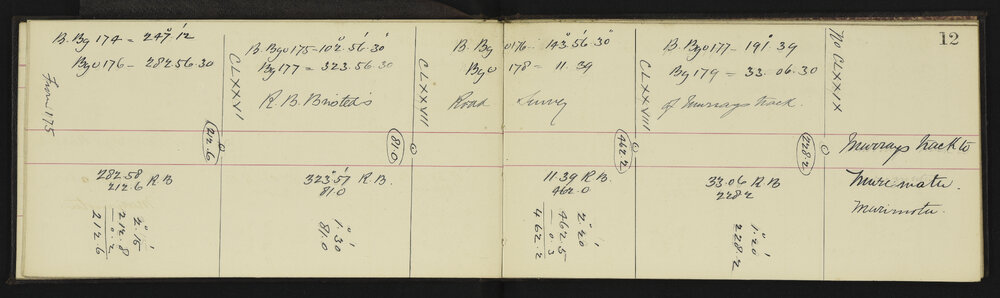 12
B. Bg 174 = 247° 12'
Bgu 176 - 282.56.30
From 175
CLXXVI
B. Bgu 175 - 102° 56' 30"
Bg 177 = 323.56.30
R. B. Bristed's
CLXXVII
B. Bgu 176. 143° 56' 30"
Bgu 178 = 11.39
Road Survey
CLXXVIII
B. Bgu 177 - 191° 39
Bg 179 = 33.06.30
of Murrays track.
No CLXXIX
212.6
81.0
462.2
228.2
Murrays track to
Murimotu.
Murimotu.
282.58 R.B
212.6
2° 15'
212.8
0.2
212.6
323° 57' R.B.
81.0
1° 30'
81.0
11.39 R.B.
462.0
2° 20'
462.5
0.3
462.2
33.06 R.B
228.2
1° 20'
228.2